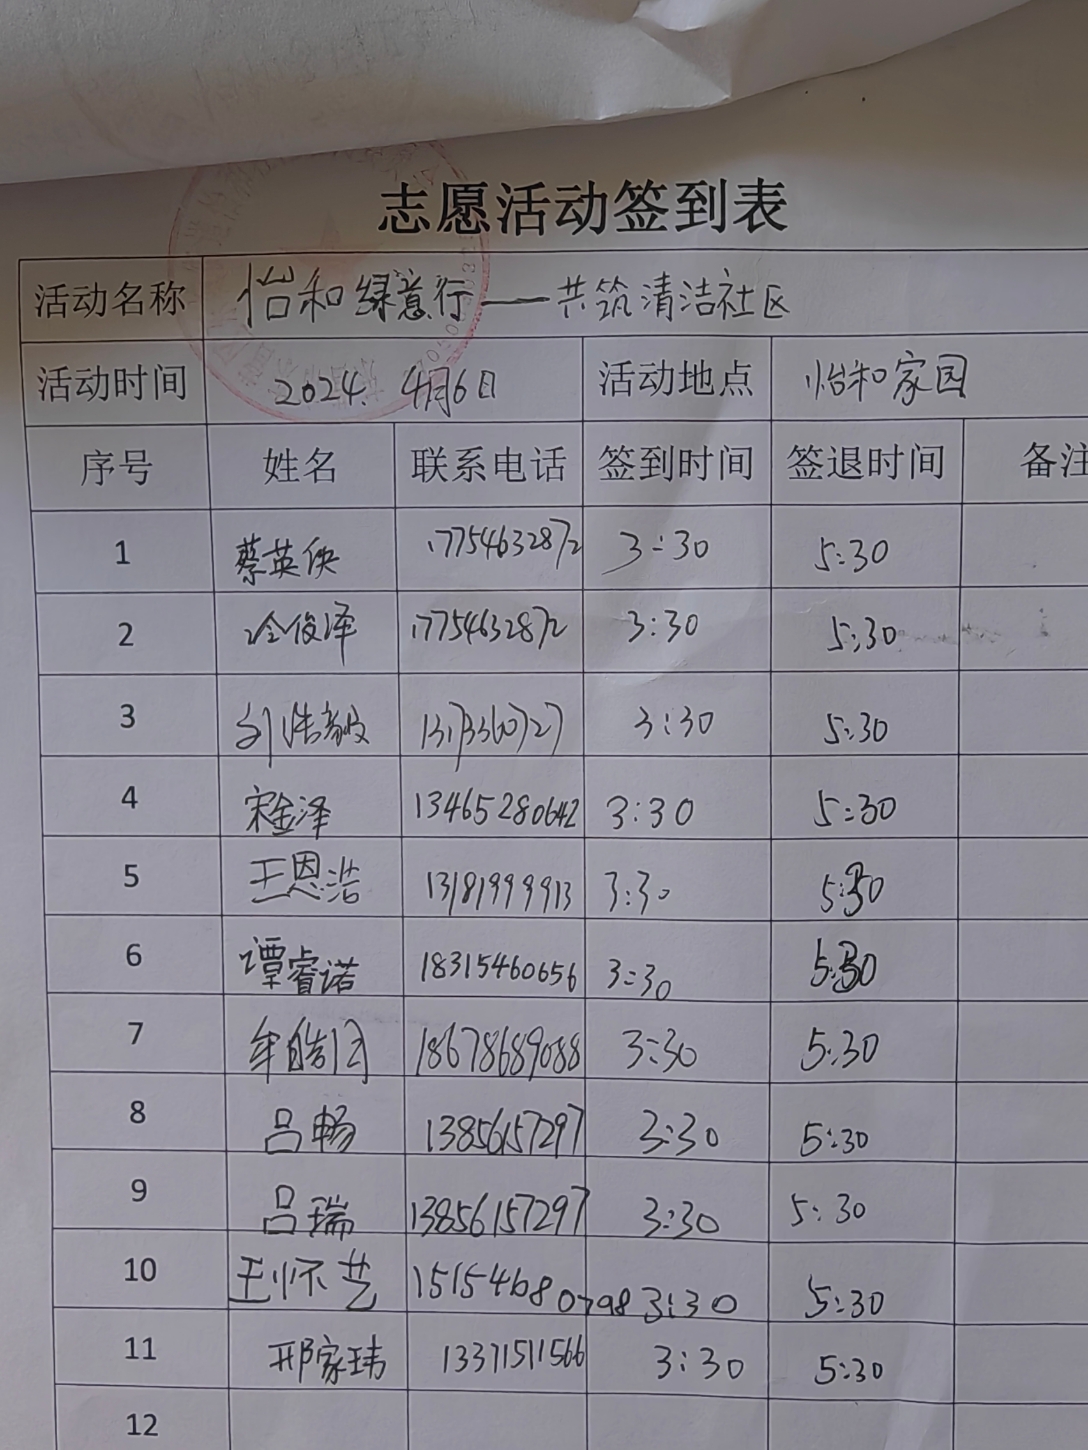 志愿活动签到表
活动名称 怡和绿意行——共筑清洁社区
活动时间 2024. 4月6日 活动地点 怡和家园
序号 姓名 联系电话 签到时间 签退时间 备注
1 蔡英侠 17754632872 3:30 5:30
2 冷俊泽 17754632872 3:30 5:30
3 刘浩毅 3:30 5:30
4 宋金泽 13465280642 3:30 5:30
5 王恩浩 13181999913 3:30 5:30
6 谭睿诺 18315460656 3:30 5:30
7 18678689088 3:30 5:30
8 吕畅 13856157297 3:30 5:30
9 吕瑞 13856157297 3:30 5:30
10 王怀艺 15154680798 3:30 5:30
11 邢家玮 13371511566 3:30 5:30
12